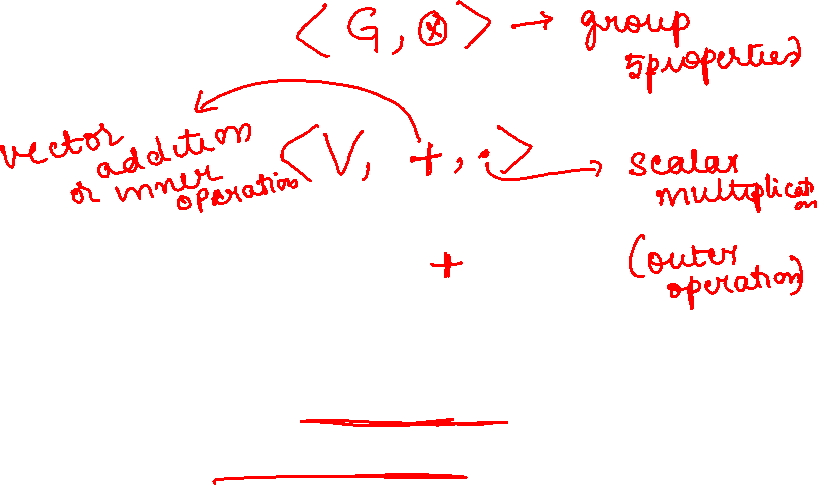 <G, ⊗> → group
5properties)
vector
addition
or inner
operation
<V, +, ·> → scalar
multiplication
+
(outer
operation)